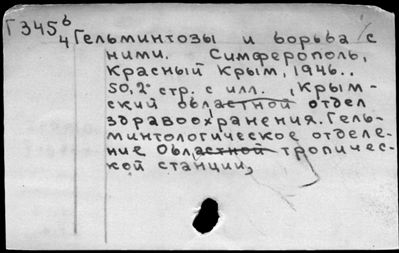 Г345 6/4 Гельминтозы и борьба с
ними. Симферополь,
Красный Крым, 1946..
50,2° стр. с илл. (Крым-
ский областной отдел
здравоохранения. Гель-
минтологическое отделе-
ние Областной тропичес-
кой станции)